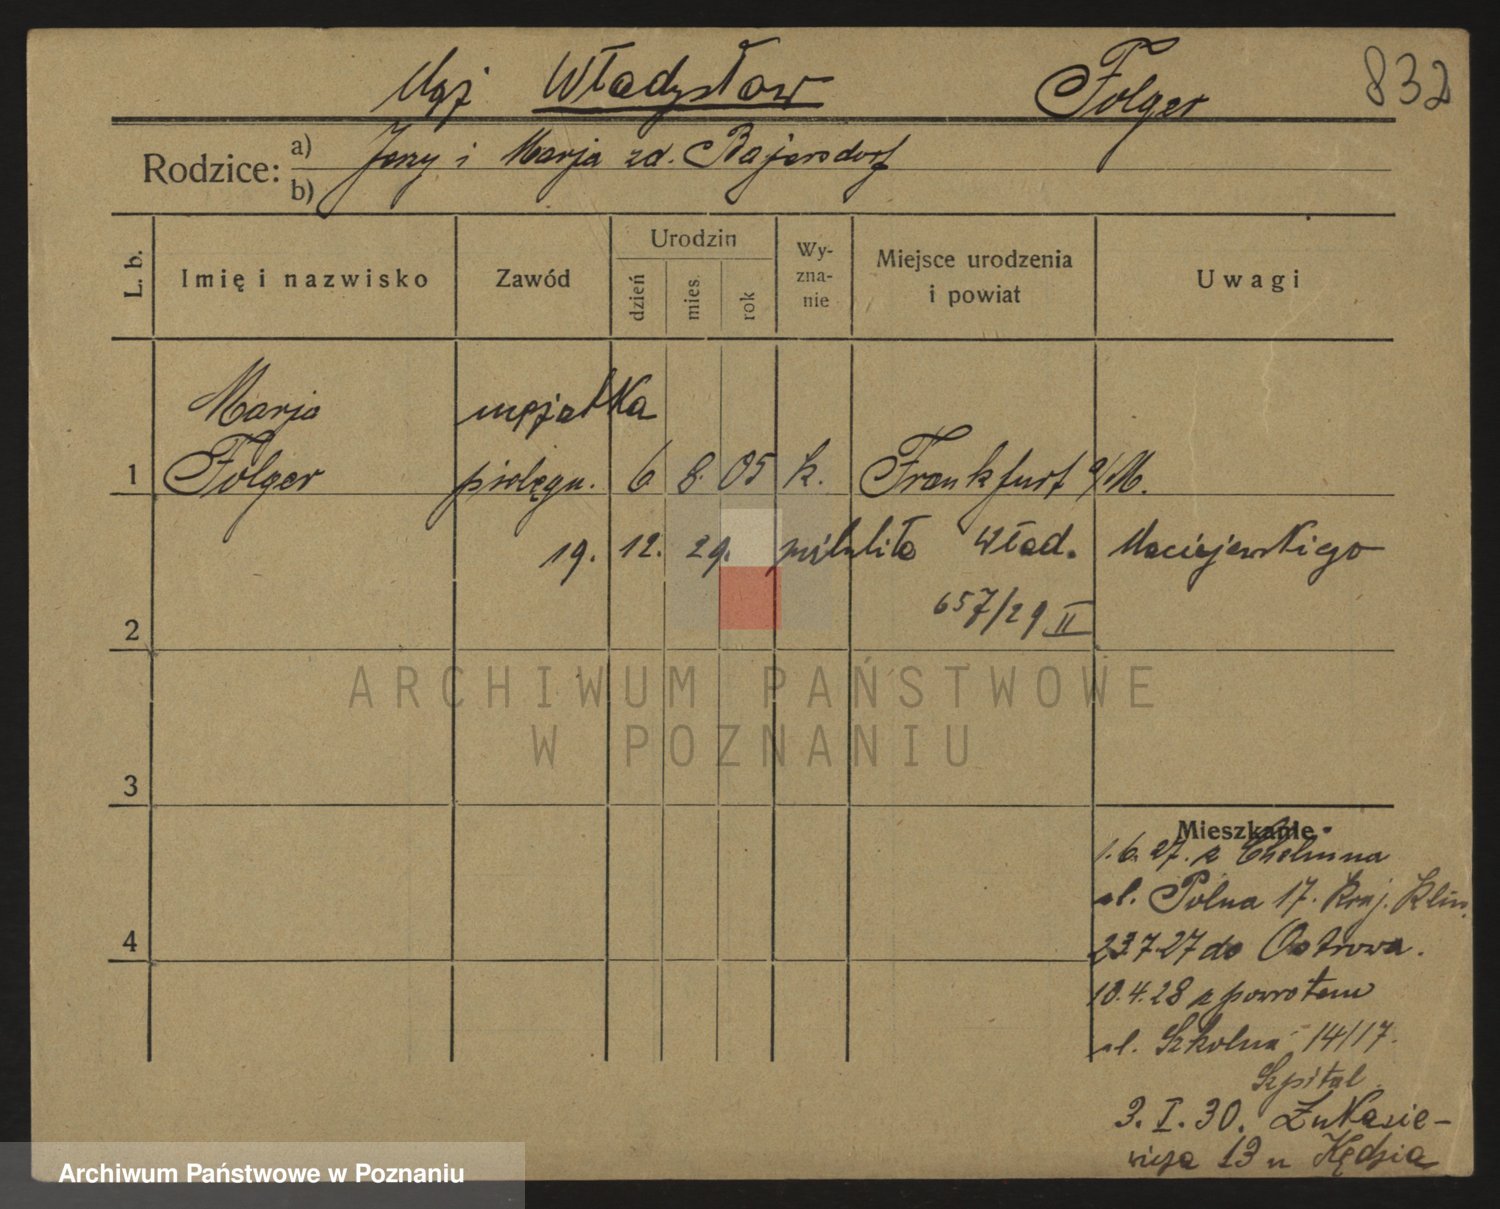 Mąż Władysław Folger 832
Rodzice: a) Jerzy i Marja zd. Bajersdorf
b)
L. b. Imię i nazwisko Zawód Urodzin dzień mies. rok Wy-zna-nie Miejsce urodzenia i powiat Uwagi
Marja mężatka
1 Folger pielęgn. 6 8. 05 k. Frankfurt a/M.
19. 12. 29. poślubiła Wład. Maciejewskiego
657/29 II
2
ARCHIWUM PAŃSTWOWE
W POZNANIU
3
Mieszkanie
1.6.27. z Chełmna
ul. Polna 17. Kraj. Klin.
4
23.7.27 do Ostrowa.
10.4.28 z powrotem
ul. Szkolna 14/17.
Szpital.
3. I. 30. Łukasie-
wicza 13 u Kędzia
Archiwum Państwowe w Poznaniu